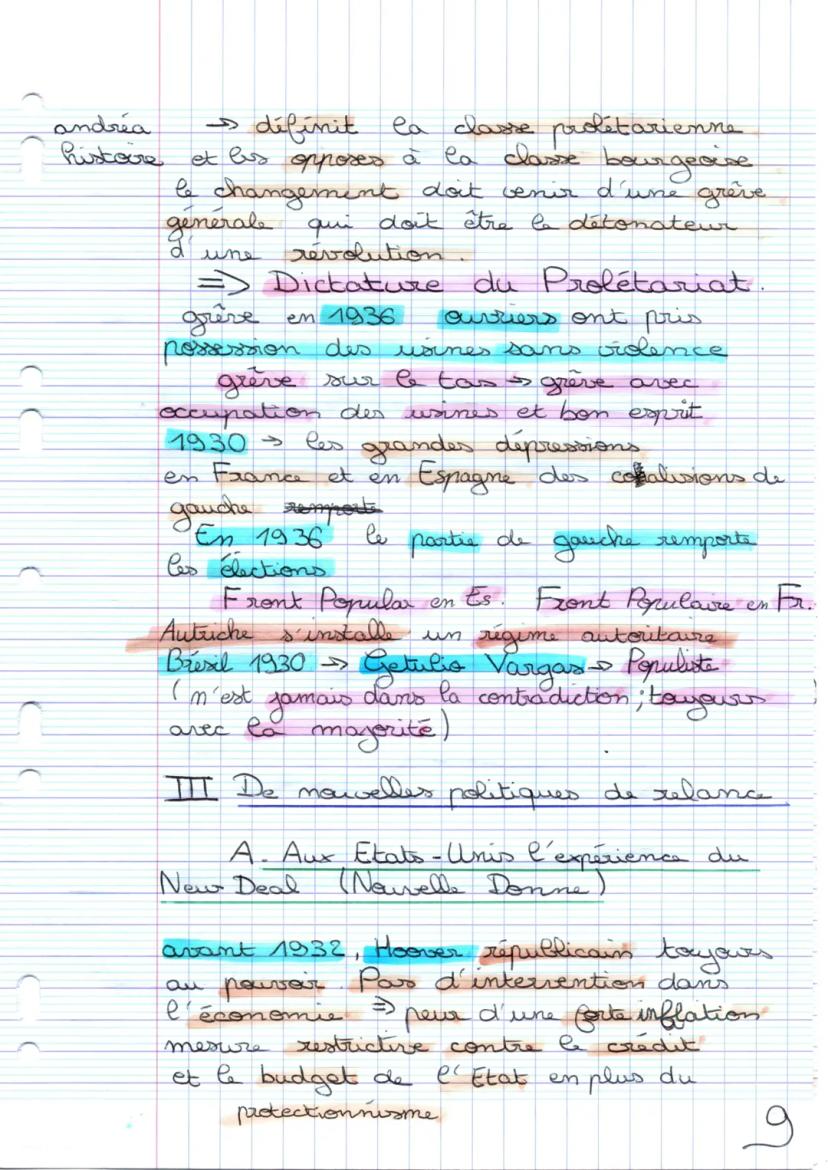 andréa → définit la classe prolétarienne
histoire et les opposes à la classe bourgeoise
le changement doit venir d'une grêve
générale qui doit être le détonateur
d'une révolution.
=> Dictature du Prolétariat.
grêve en 1936 ouvriers ont pris
possession des usines sans violence
grêve sur le tas → grêve avec
occupation des usines et bon esprit
1930 → les grandes dépressions
en France et en Espagne des coalisions de
gauche remporte
En 1936 le partie de gauche remporte
les élections
Front Popular en Es. Front Populaire en Fr.
Autriche s'installe un régime autoritaire
Brésil 1930 → Getulio Vargas → Populiste
(n'est jamais dans la contradiction; toujours
avec la majorité)
III De nouvelles politiques de relance
A. Aux Etats-Unis l'expérience du
New Deal (Nouvelle Donne)
avant 1932, Hoover républicain toujours
au pouvoir. Pas d'intervention dans
l'économie => peur d'une forte inflation
mesure restrictive contre le crédit
et le budget de l'Etat en plus du
protectionnisme
9